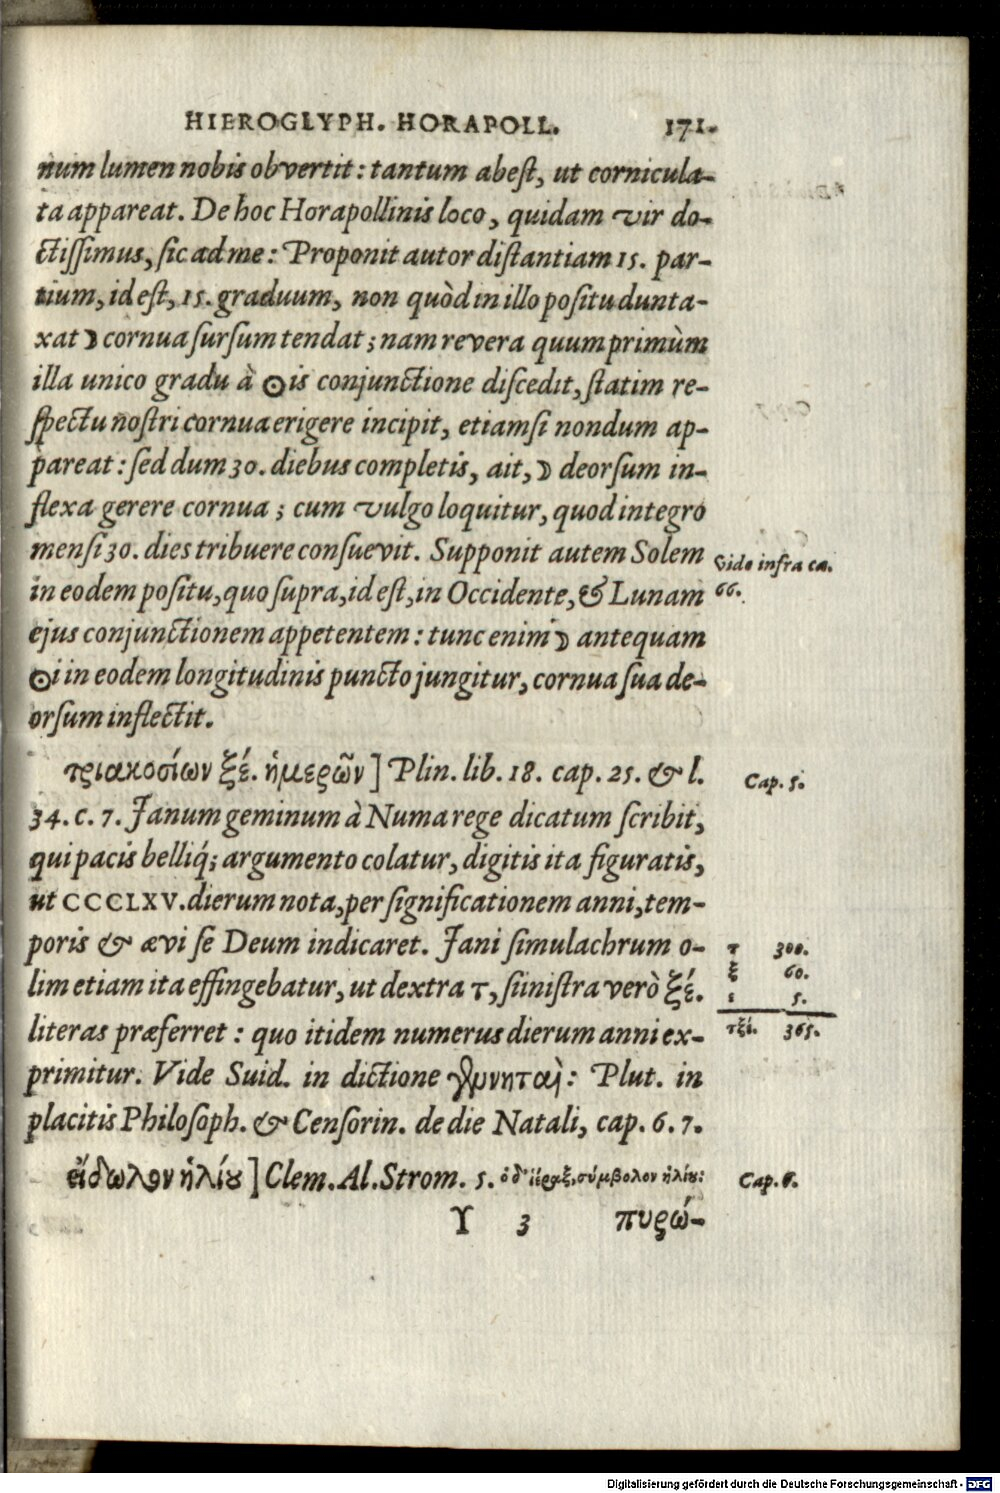 HIEROGLYPH. HORAPOLL. 171.
num lumen nobis obvertit: tantum abest, ut cornicula-
ta appareat. De hoc Horapollinis loco, quidam vir do-
ctissimus, sic ad me: Proponit autor distantiam 15. par-
tium, id est, 15. graduum, non quòd in illo positu dunta-
xat ☽ cornua sursum tendat; nam revera quum primùm
illa unico gradu à ☉is conjunctione discedit, statim re-
spectu nostri cornua erigere incipit, etiamsi nondum ap-
pareat: sed dum 30. diebus completis, ait, ☽ deorsum in-
flexa gerere cornua; cum vulgo loquitur, quod integro
mensi 30. dies tribuere consuevit. Supponit autem Solem
Vide infra ca.
in eodem positu, quo supra, id est, in Occidente, & Lunam
66.
ejus conjunctionem appetentem: tunc enim ☽ antequam
☉i in eodem longitudinis puncto jungitur, cornua sua de-
orsum inflectit.
τριακοσίων ξέ. ἡμερῶν] Plin. lib. 18. cap. 25. & l.
Cap. 5.
34. c. 7. Janum geminum à Numa rege dicatum scribit,
qui pacis belliq́; argumento colatur, digitis ita figuratis,
ut CCCLXV. dierum nota, per significationem anni, tem-
poris & ævi se Deum indicaret. Jani simulachrum o-
τ 300.
lim etiam ita effingebatur, ut dextra τ, siinistra verò ξέ.
ξ 60.
ε 5.
literas præferret: quo itidem numerus dierum anni ex-
τξέ. 365.
primitur. Vide Suid. in dictione : Plut. in
placitis Philosoph. & Censorin. de die Natali, cap. 6. 7.
εἴδωλον ἡλίου] Clem. Al. Strom. 5. ὁ δ' ἱέραξ, σύμβολον ἡλίου:
Cap. 6.
Y 3 πυρώ-
Digitalisierung gefördert durch die Deutsche Forschungsgemeinschaft - DFG